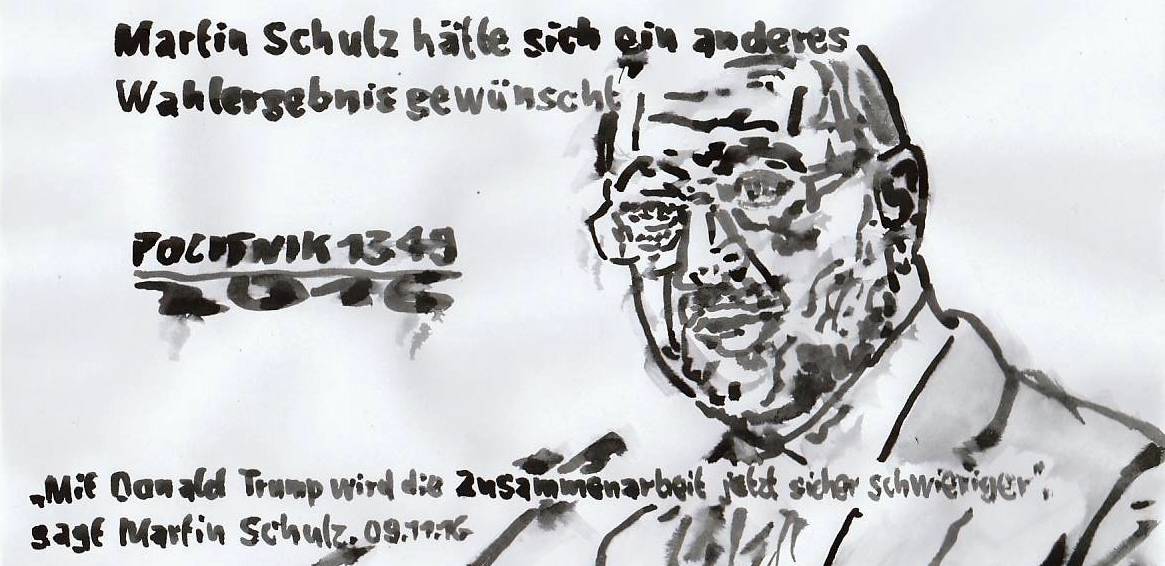 Martin Schulz hätte sich ein anderes
Wahlergebnis gewünscht
POLITNIK 1349
2016
„Mit Donald Trump wird die Zusammenarbeit jetzt sicher schwieriger",
sagt Martin Schulz. 09.11.16